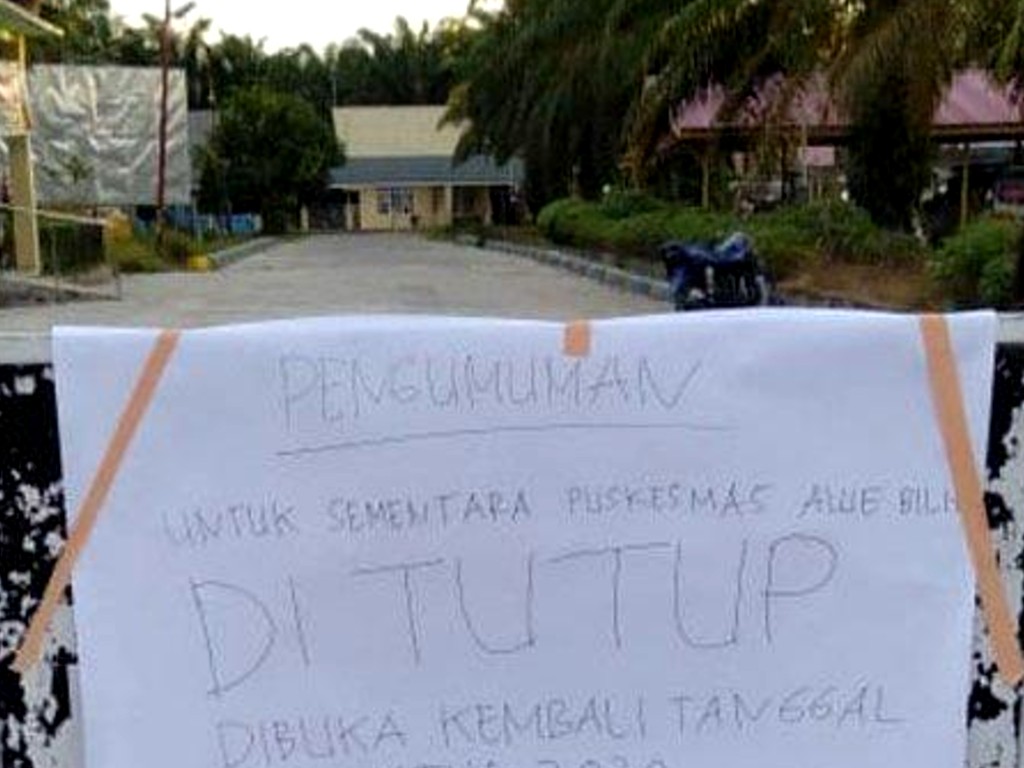 PENGUMUMAN
UNTUK SEMENTARA PUSKESMAS ALUE BILIH
DI TUTUP
DIBUKA KEMBALI TANGGAL